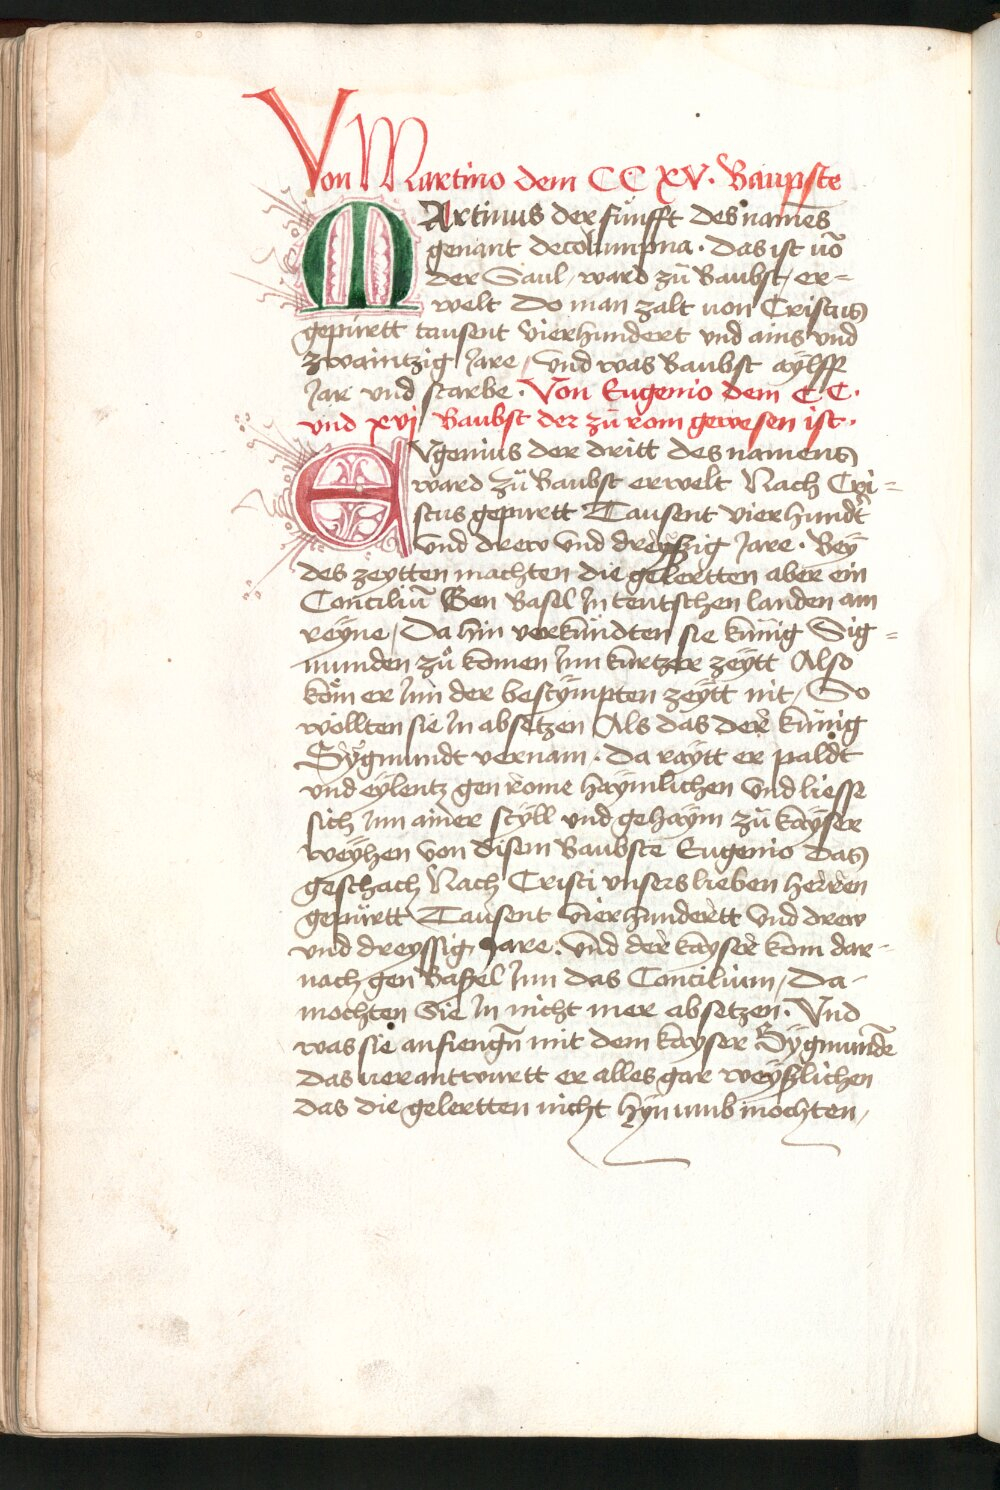 Von Martino dem CC XV. Baupste
MArtinus der fünfft des namēs
genant decolumpna. das ist uō
der Saul, ward zů Baubst, er=
welt Do man zalt von Cristus
gepürtt tausent vierhundert vnd ains vnd
zwaintzig Jare, vnd was Baubst aÿlff
Jar vnd starbe. Von Eugenio dem CC.
vnd xvj Baubst der zů rom gewesen ist.
EVgenius der dritt des namens
ward zů Baubst erwelt Nach Cri=
stus gepurtt Tausent vierhundt
vnd drew vnd dreÿßzig Jare. Beÿ
des zeytten machten die gelertten aber ein
Conciliū Gen Basel Jn teutschen landen am
reÿne, Da hin verkündten sie künig Sig=
munden zů komen Jnn kurtzer zeÿtt Also
kom er Jnn der bestÿmpten zeÿtt nit, So
wollten sie Jn absetzen Als das der künig
Sÿgmundt vernam. da raÿtt er paldt
vnd eÿlentz gen rome haÿmlichen vnd liesse
sich Jnn ainer stÿll vnd gehaÿm zů kaÿser
weÿhen von disem Baubste Eugenio das
geschach Nach Cristi vnsers lieben herren
gepürtt Tausent vierhundertt vnd drew
vnd dreyssig Jare. vnd der kayser kom dar=
nach gen Baßel Jnn das Concilium, Da=
mochten Sie Jn nicht mer absetzen. Vnd
was sie anfiengn̄ mit dem kayser Sÿgmundē
das verantwurtt er alles gar weÿßlichen
das die gelertten nicht hÿn umb mochten,